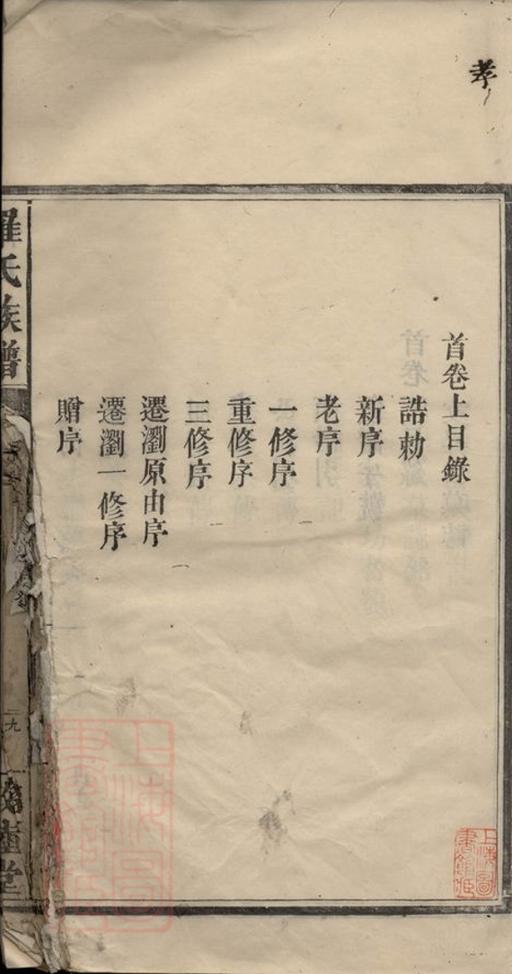 孝
首卷上目錄
誥勅
新序
老序
一修序
重修序
三修序
遷瀏原由序
遷瀏一修序
贈序
羅氏族譜
堂
上海圖書館藏